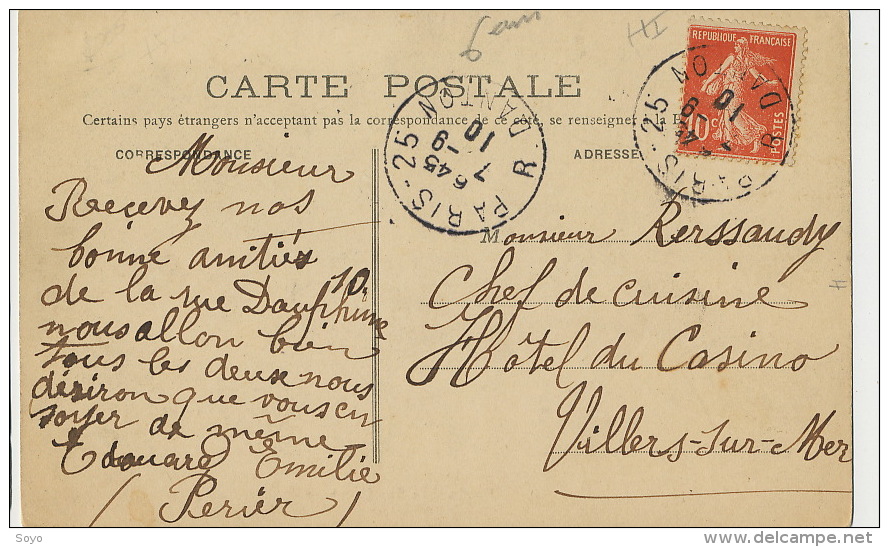 6 am
HI
CARTE POSTALE
Certains pays étrangers n'acceptent pas la correspondance de ce côté, se renseigner à la
CORRESPONDANCE
ADRESSE
REPUBLIQUE FRANÇAISE
10 c
POSTES
PARIS - 25 R DANTON
6 45
7 - 9
10
PARIS - 25 R DANTON
10
Monsieur
Recevez nos
bonne amitiés
de la rue Dauphine 10
nous allon bien
tous les deux nous
désiron que vous en
soyer de même
Edouard Emilie
(Perier)
Monsieur Kerssaudy
Chef de cuisine
Hôtel du Casino
Villers-sur-Mer
Soyo
www.delcampe.net